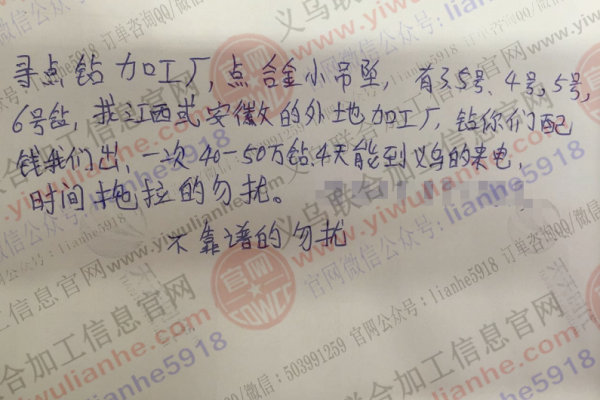 寻点钻加工厂,点合金小吊坠,有3.5号、4号,5号,
6号钻,找江西或安徽的外地加工厂,钻你们配
钱我们出,一次40-50万钻.4天能到义乌的来电,
时间拖拉的勿扰。
不靠谱的勿扰
义乌联合加工信息官网
www.yiwulianhe.com
官网微信公众号:lianhe5918
订单咨询QQ/微信:503991259
官网